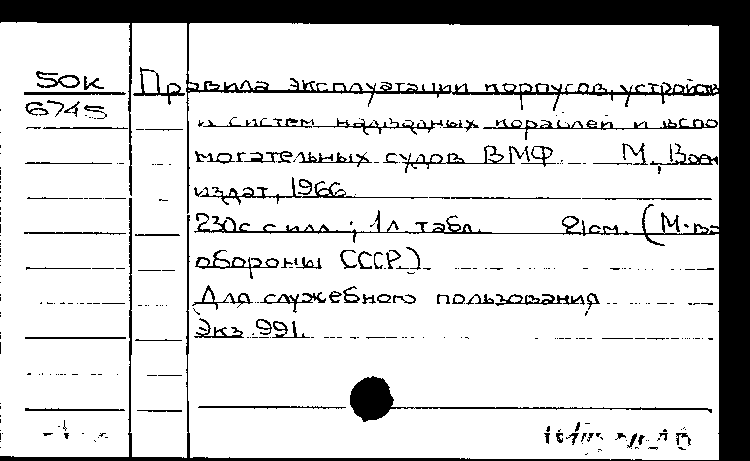 50к Правила эксплуатации корпусов, устройств
6745
и систем надводных кораблей и вспо
могательных судов ВМФ М., Воен
издат, 1966
230с с илл.; 1л. табл. 21см. (М-во
обороны СССР.)
Для служебного пользования
Экз 991.